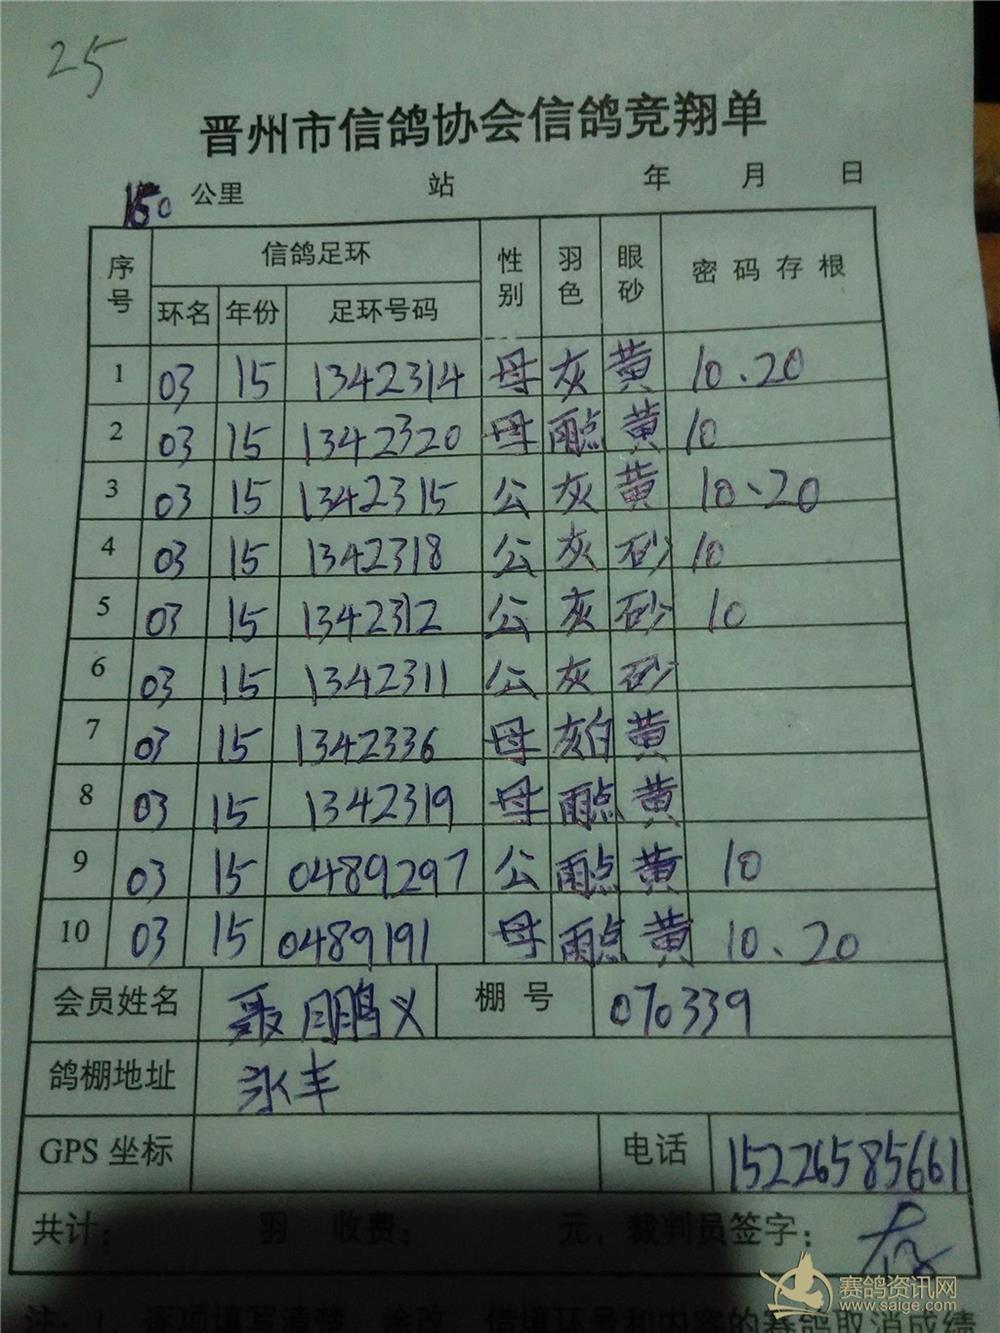 25
晋州市信鸽协会信鸽竞翔单
150 公里 站 年 月 日
序号 信鸽足环 性别 羽色 眼砂 密码存根
环名 年份 足环号码
1 03 15 1342314 母 灰 黄 10、20
2 03 15 1342320 母 雨点 黄 10
3 03 15 1342315 公 灰 黄 10、20
4 03 15 1342318 公 灰 砂 10
5 03 15 1342312 公 灰 砂 10
6 03 15 1342311 公 灰 砂
7 03 15 1342336 母 灰白 黄
8 03 15 1342319 母 雨点 黄
9 03 15 0489297 公 雨点 黄 10
10 03 15 0489191 母 雨点 黄 10、20
会员姓名 聂鹏义 棚号 070339
鸽棚地址 永丰
GPS 坐标 电话 15226585661
共计: 羽 收费: 元, 裁判员签字:
注:1、逐项填写清楚，涂改、借填环号和内容的赛鸽取消成绩
赛鸽资讯网
www.saige.com